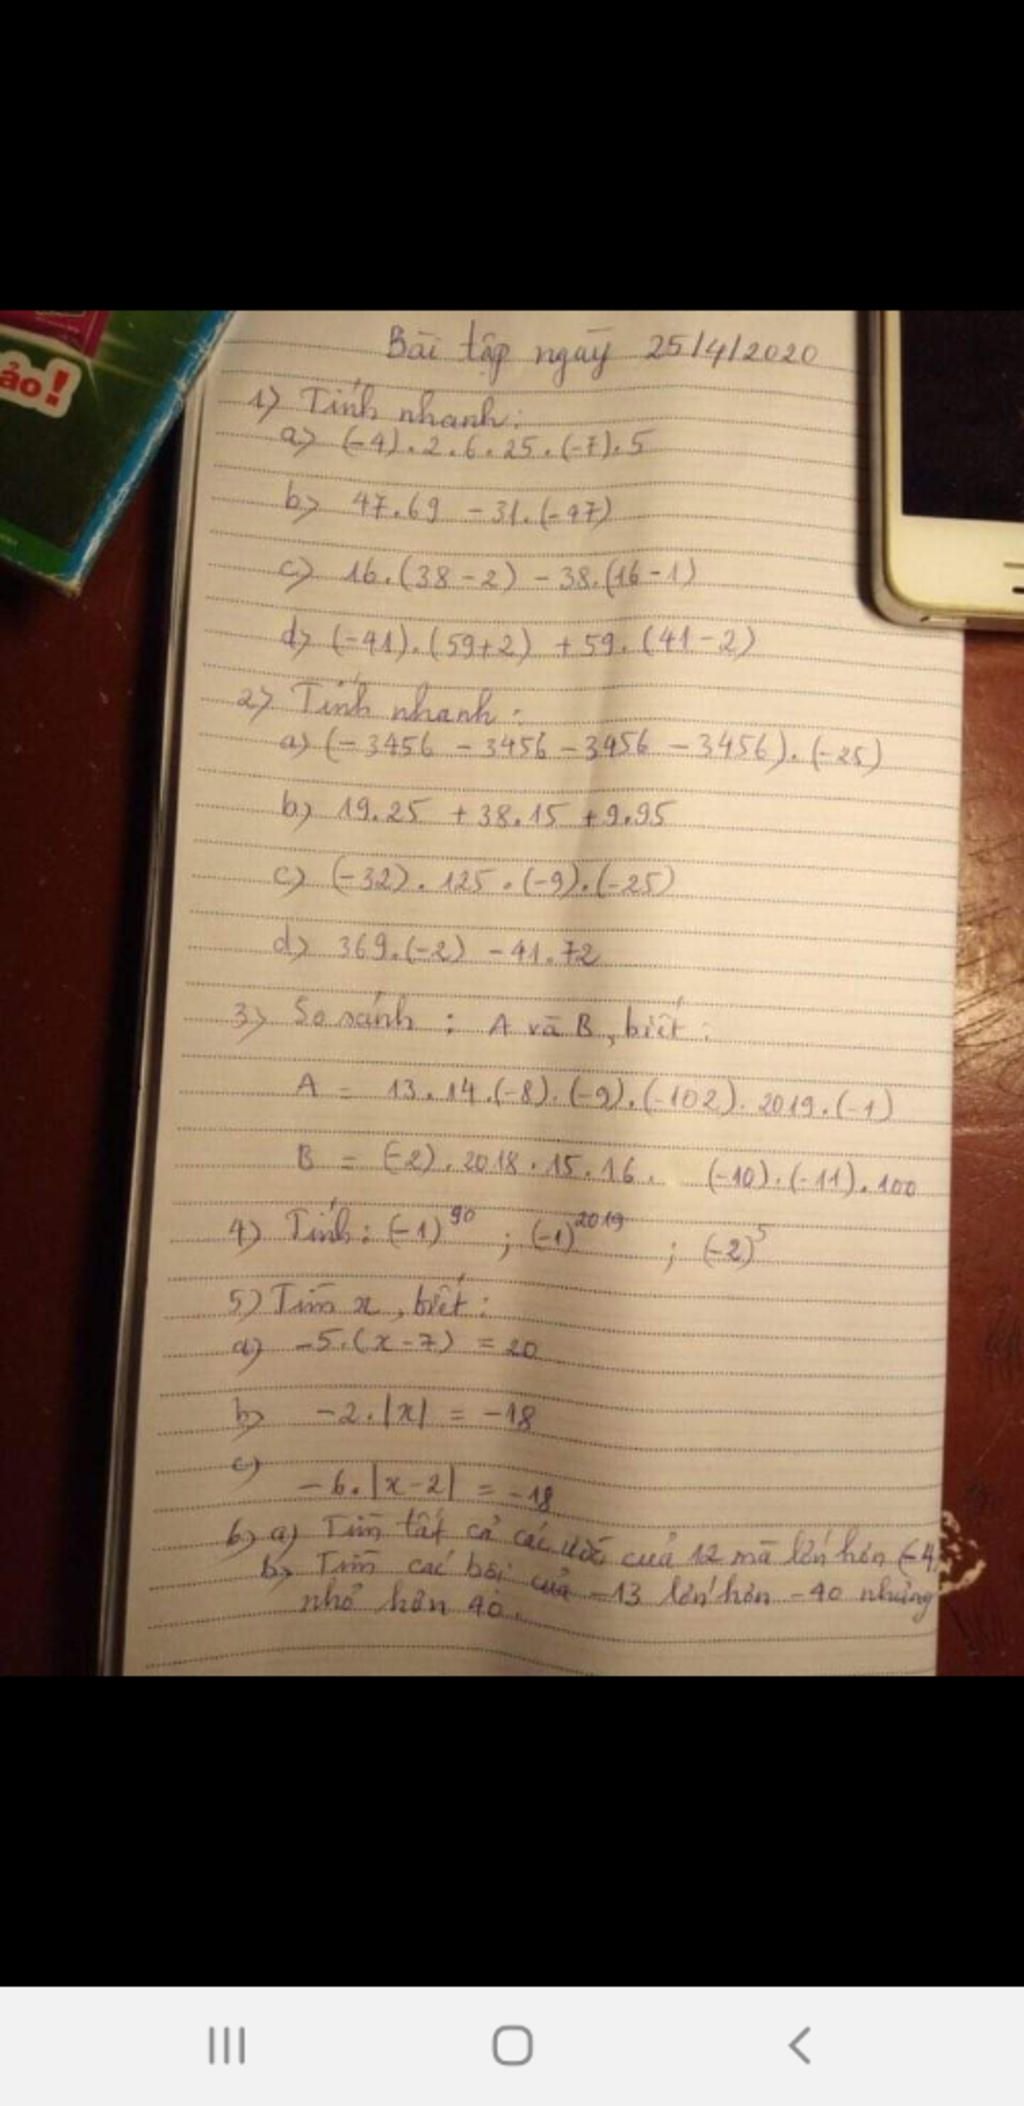 ảo!
Bài tập ngày 25/4/2020
1) Tính nhanh:
a) (-4).2.6.25.(-7).5
b) 47.69 - 31.(-47)
c) 16.(38-2) - 38.(16-1)
d) (-41).(59+2) + 59.(41-2)
2) Tính nhanh:
a) (-3456 - 3456 - 3456 - 3456).(-25)
b) 19.25 + 38.15 + 9.95
c) (-32).125.(-9).(-25)
d) 369.(-2) - 41.72
3) So sánh: A và B, biết:
A = 13.14.(-8).(-9).(-102).2019.(-1)
B = (-2).2018.15.16. (-10).(-11).100
4) Tính: (-1)^90 ; (-1)^2019 ; (-2)^5
5) Tìm x, biết:
a) -5.(x-7) = 20
b) -2.|x| = -18
c) -6.|x-2| = -18
6) a) Tìm tất cả các ước của 12 mà lớn hơn (-4)
b) Tìm các bội của -13 lớn hơn -40 nhưng
nhỏ hơn 40.